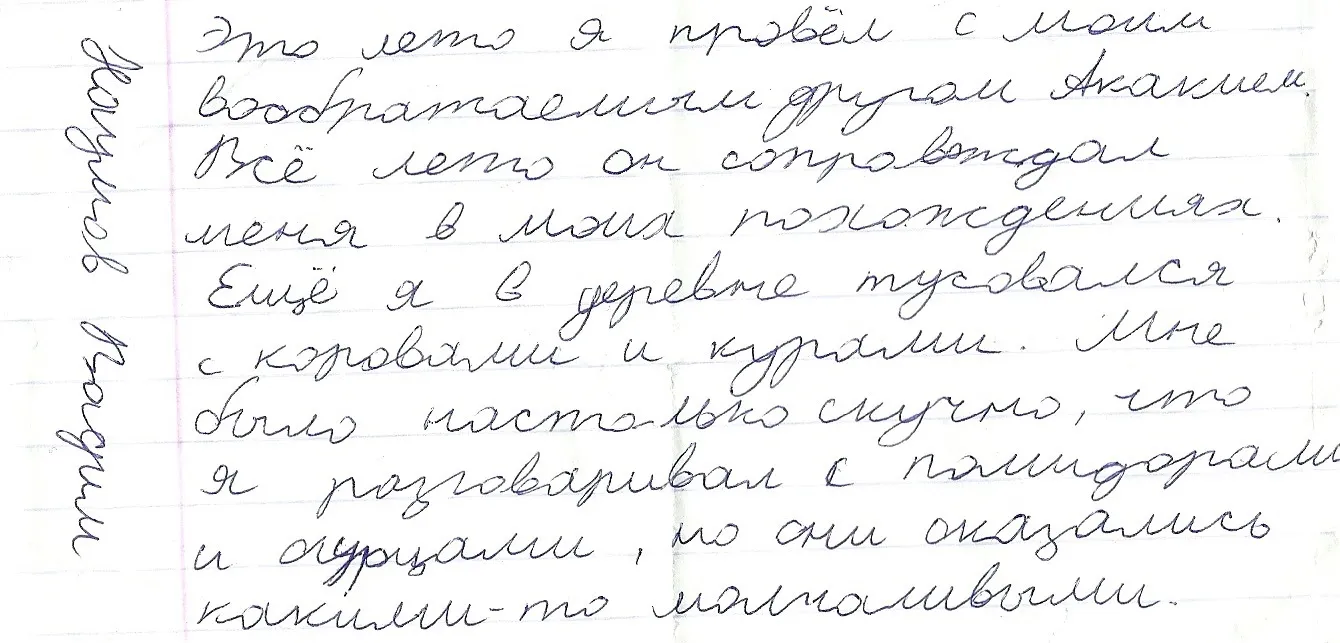 Это лето я провёл с моим
воображаемым другом Акакием.
Всё лето он сопровждал
меня в моих похождениях.
Ещё я в деревне тусовался
с коровами и курами. Мне
было настолько скучно, что
я разговаривал с помидорами
и огурцами, но они оказались
какими-то молчаливыми.
Вадим